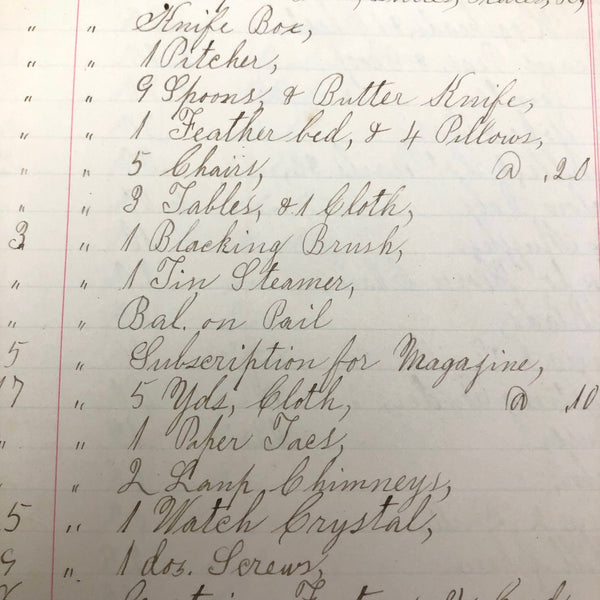 " " Knife Box,
" " 1 Pitcher,
" " 9 Spoons, & Butter Knife,
" " 1 Feather bed, & 4 Pillows,
" " 5 Chairs, @ .20
" " 3 Tables, & 1 Cloth,
3 " 1 Blacking Brush,
" " 1 Tin Steamer,
" " Bal. on Pail
5 " Subscription for Magazine,
17 " 5 Yds, Cloth, @ .10
" " 1 Paper Tacs,
" " 2 Lamp Chimneys,
5 " 1 Watch Crystal,
9 " 1 doz. Screws,